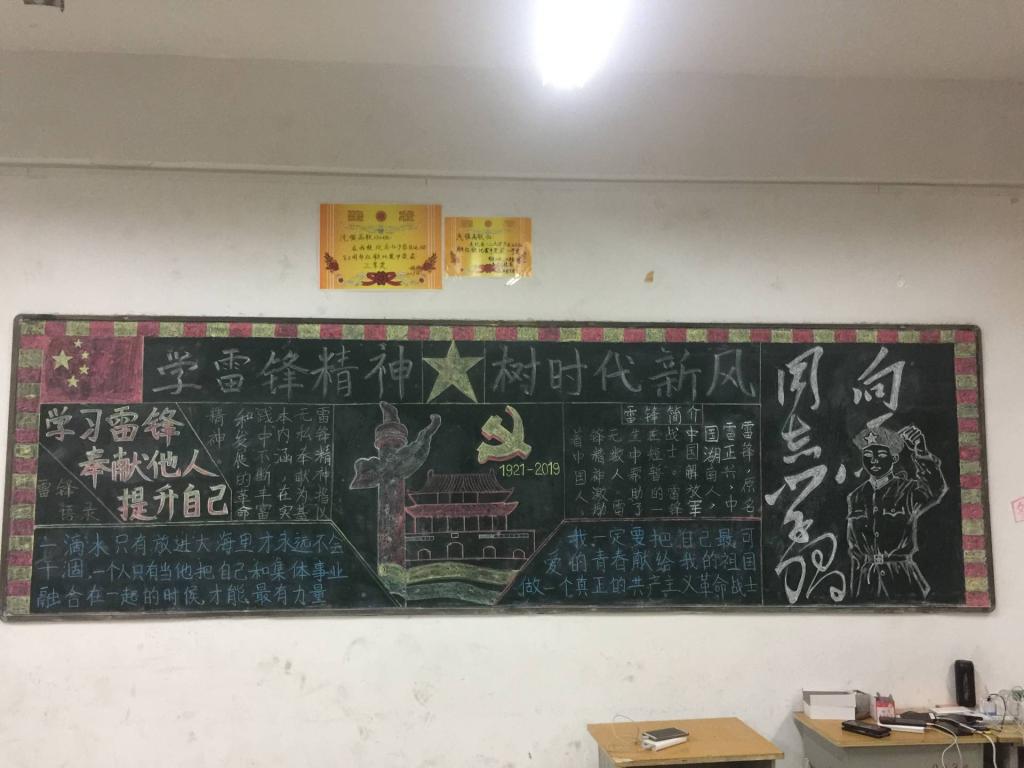 学雷锋精神 树时代新风
学习雷锋
奉献他人
提升自己
雷锋
语录
雷锋精神指以
无私奉献为基
本内涵，在实
践中不断丰富
和发展的革命
精神。
1921-2019
雷锋简介
雷锋，原名
雷正兴，中
国湖南人，
中国解放军
战士。雷锋
在短暂的一
生中帮助了
无数人。雷
锋精神激励
着中国人。
一滴水只有放进大海里才永远不会
干涸，一个人只有当他把自己和集体事业
融合在一起的时候，才能最有力量
我一定要把自己最可
爱的青春献给我的祖国
做一个真正的共产主义革命战士
向
同志学习